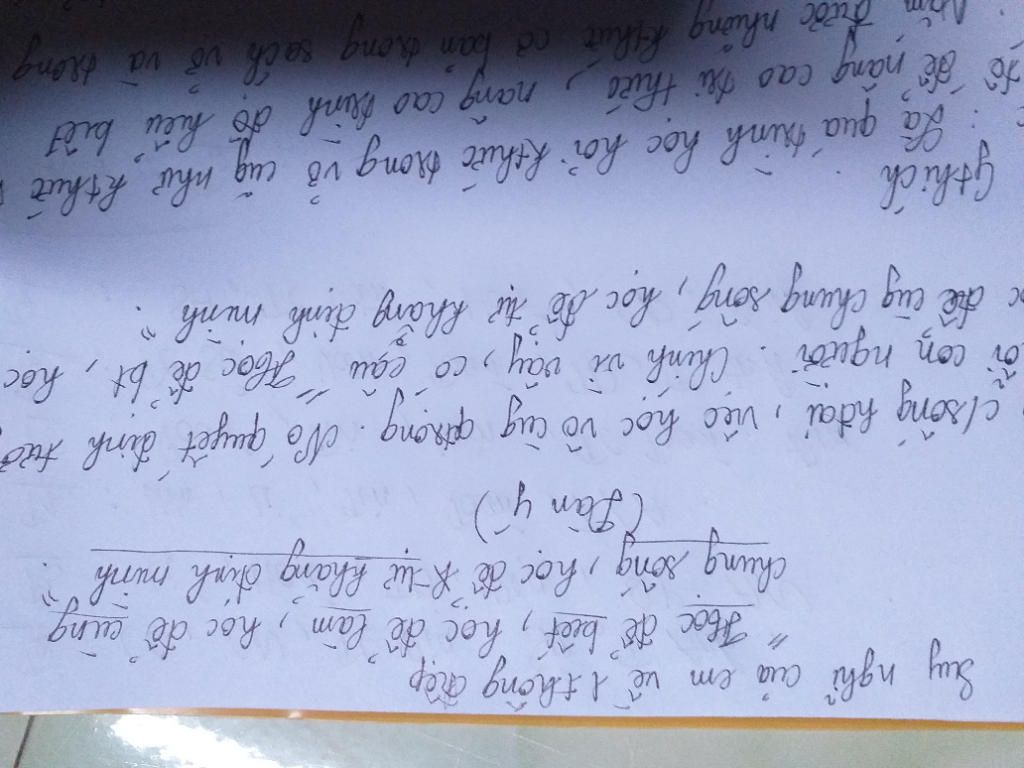 Suy nghĩ của em về 1 thông điệp
"Học để biết, học để làm, học để cùng
chung sống, học để k tự khẳng định mình".
(Dàn ý)
c/sống hđại, việc học vô cùng qtrọng. Nó quyết định
con người. Chính vì vậy, có câu "Học để bt, học
để cùng chung sống, học để tự khẳng định mình".
Gthích
: Là quá trình học hỏi kthức trong vở cũg như kthức
để nâng cao tri thức, nâng cao trình độ hiểu biết
Nắm được những kthức cơ bản trong sách vở và trong